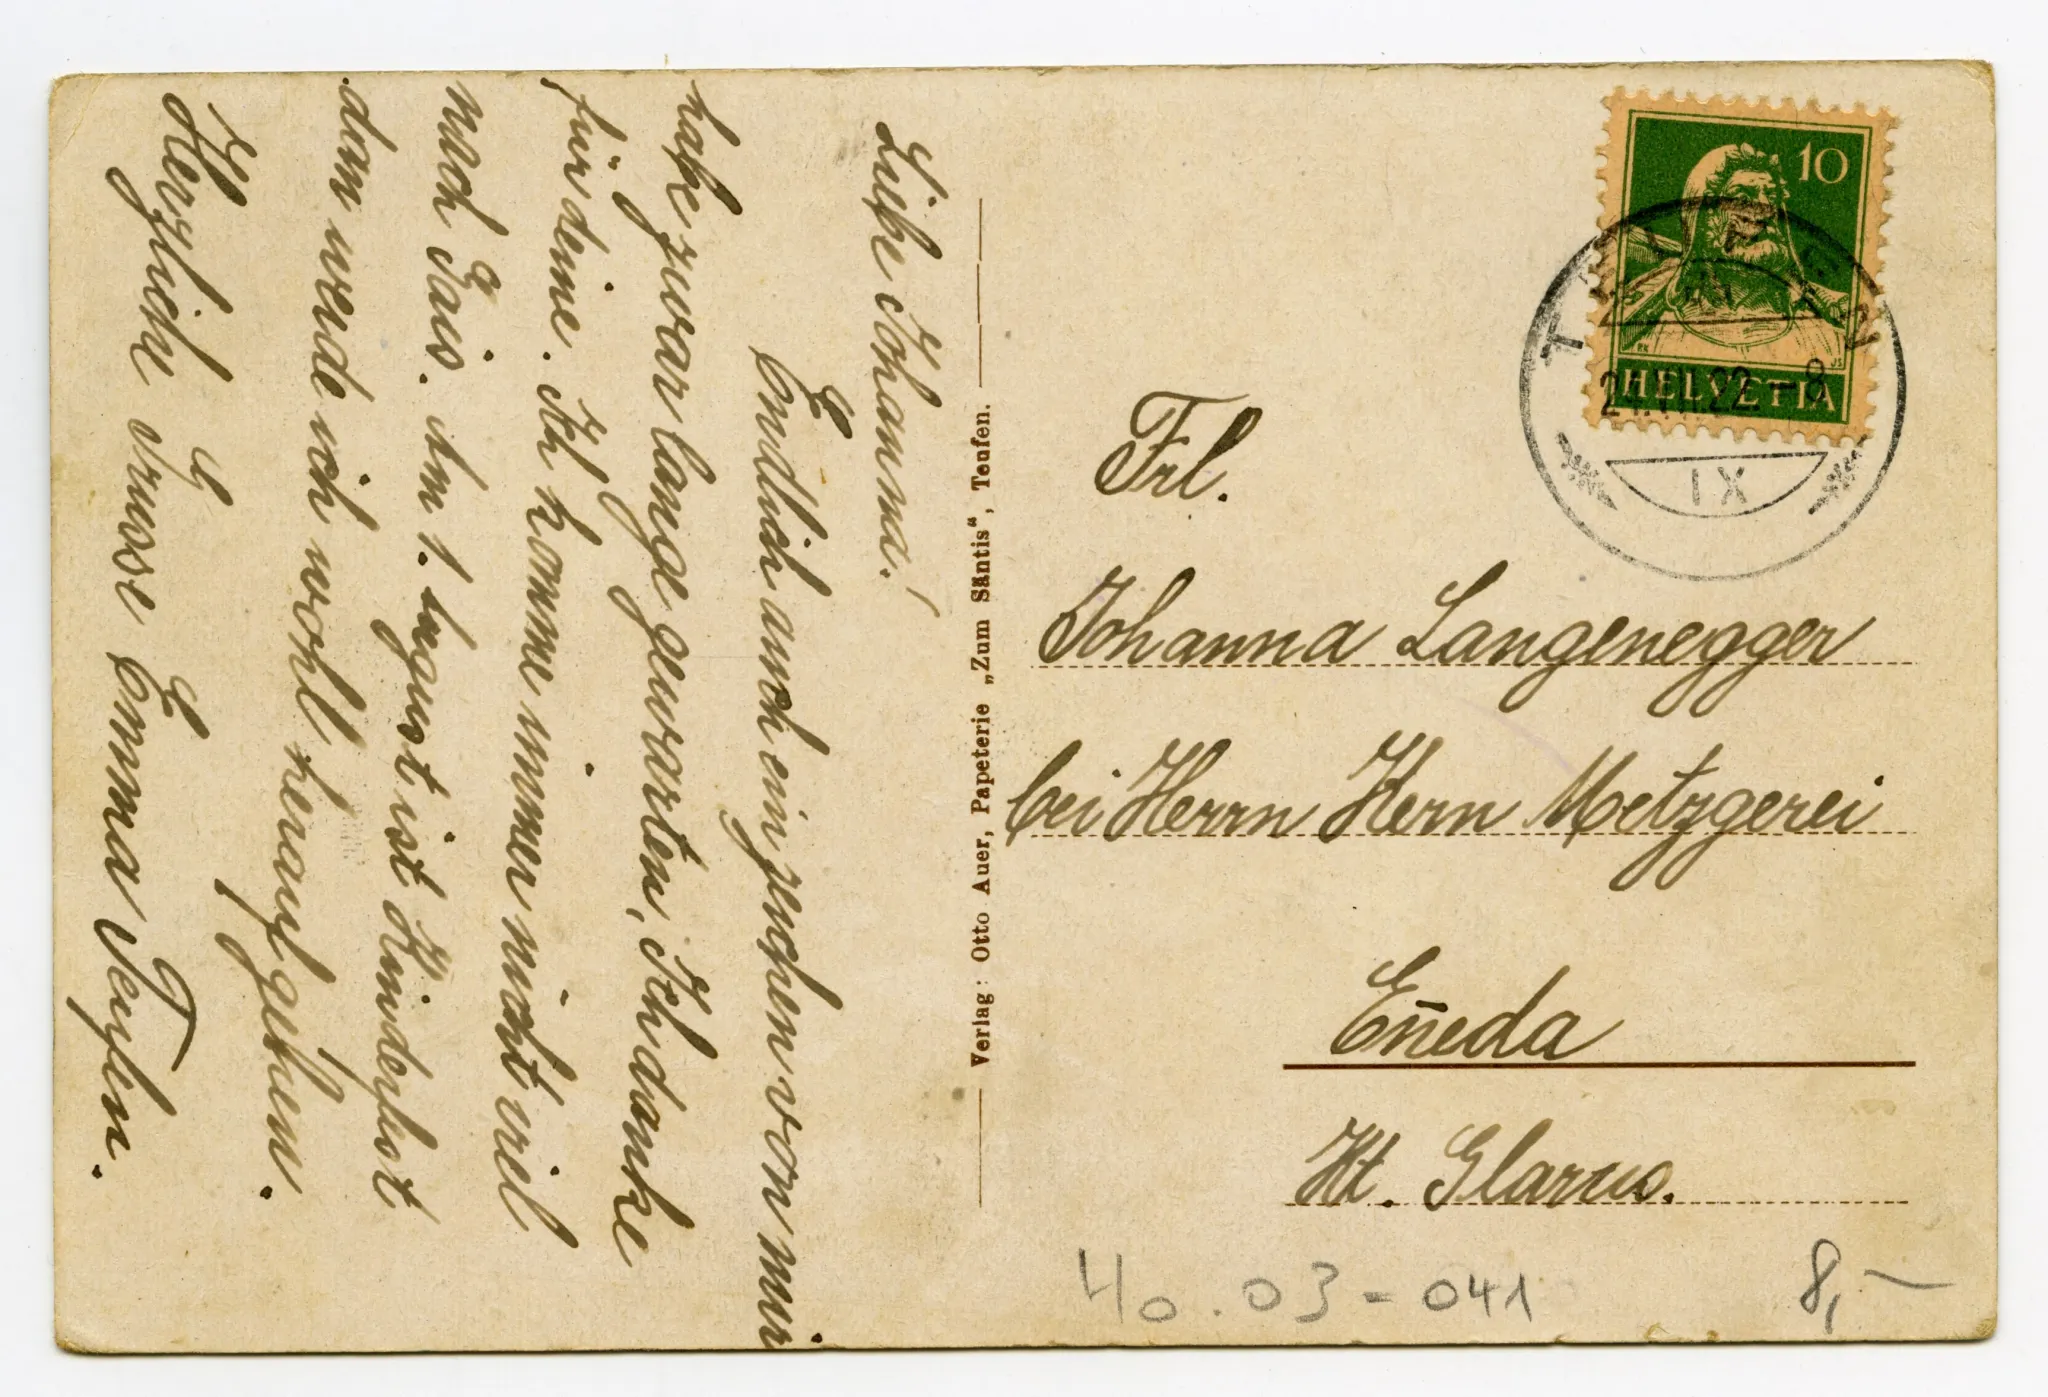 Liebe Johanna!
Endlich auch ein zeichen von mir
habe zwar lange gewarten, Ich danke
für deine. Ich komme immer nicht viel
nach Gais. Am 1. August ist Kinderfest
dan werde ich wohl heraufgehen.
Herzliche Grüsse Emma Teufen.
Verlag: Otto Auer, Papeterie „Zum Säntis“, Teufen.
10
HELVETIA
TEUFEN
24.VIII.22.–8
IX
Frl.
Johanna Langenegger
bei Herrn Kern Metzgerei
En̄eda
Kt. Glarus.
40.03-041
8,–